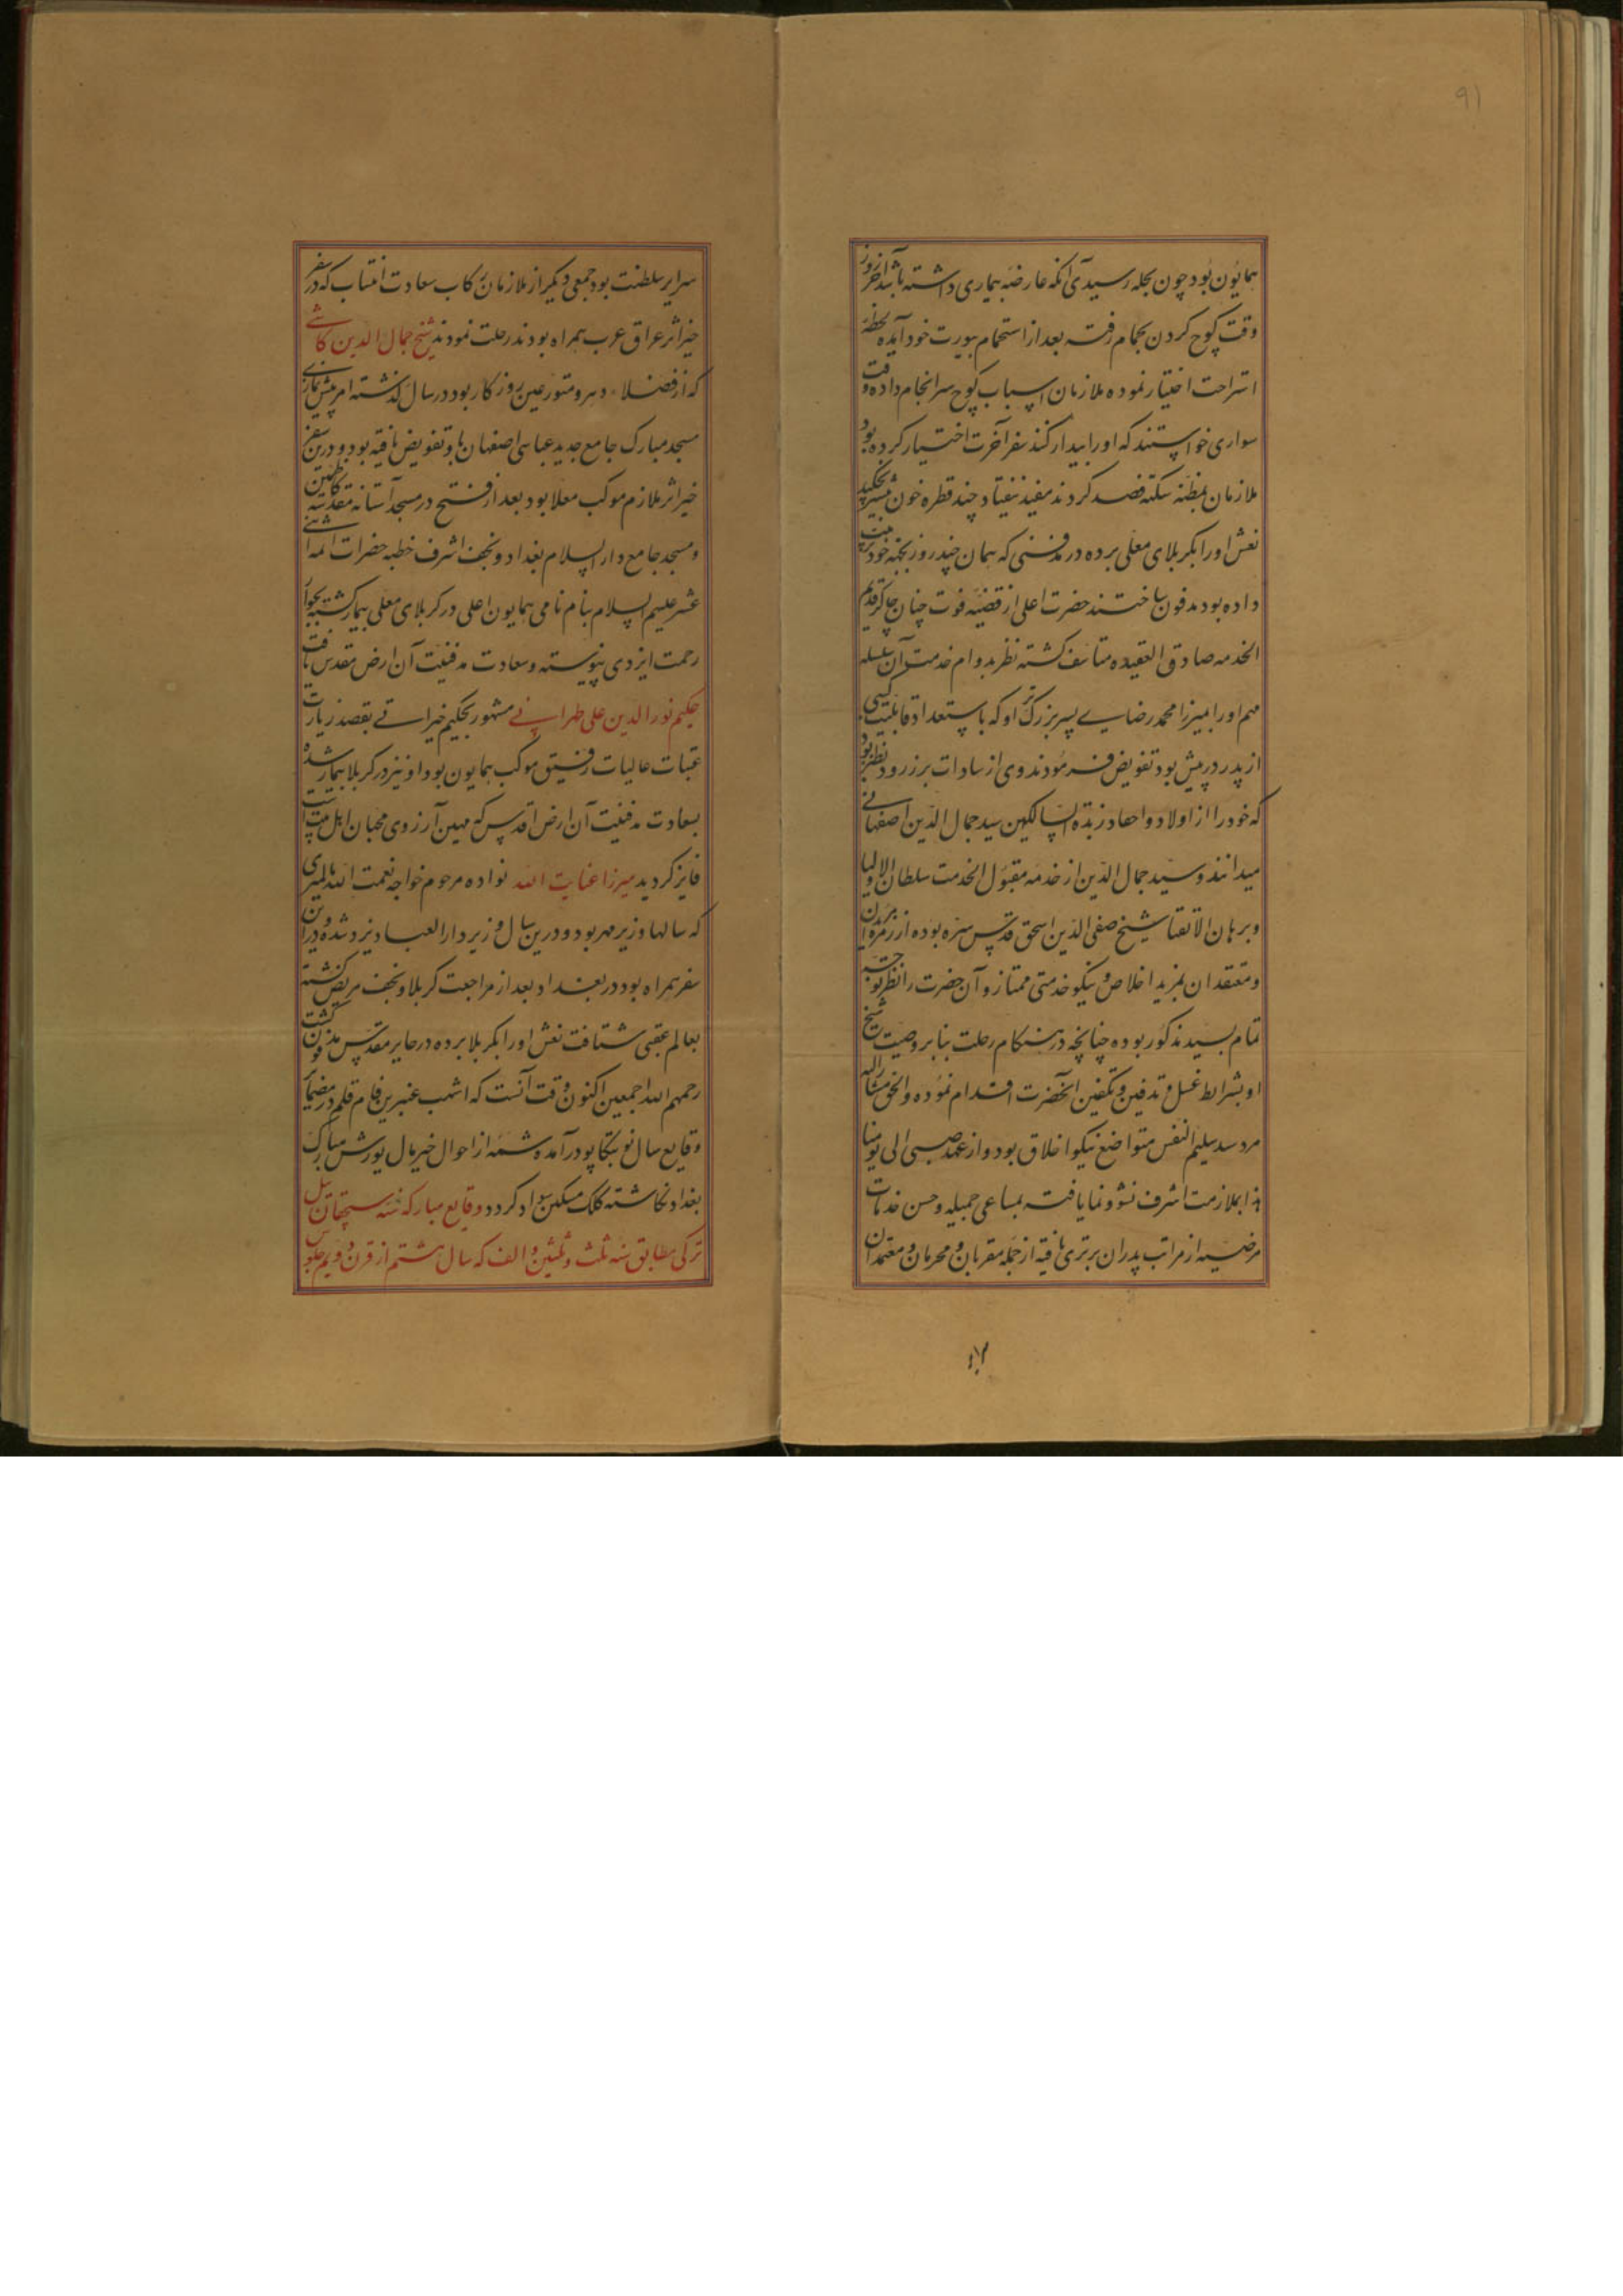 ۹۱
همایون بود چون بحله رسید بی آنکه عارضه بیماری داشته باشد آخر روز
وقت کوچ کردن بحمام رفته بعد از استحمام بیورت خود آمده لحظه
استراحت اختیار نموده ملازمان اسباب کوچ سرانجام داده وقت
سواری خواستند که او را بیدار کنند سفر آخرت اختیار کرده بود
ملازمان بمظنه سکته فصد کردند مفید نیفتاد چند قطره خون بیش نچکید
نعش او را بکربلای معلی برده در مدفنی که همان چند روز بجهة خود ترتیب
داده بود مدفون ساختند حضرت اعلی از قضیه فوت چنان چاکر قدیم
الخدمه صادق العقیده متاسف کشته نظر بدوام خدمت آن سلسله
مهم او را بمیرزا محمد رضای پسر بزرگتر او که باستعداد و قابلیت کسبی
از پدر در پیش بود تفویض فرمودند وی از سادات برزرود نطنز بود
که خود را از اولاد و احفاد زبدة السالکین سید جمال الدین اصفهانی
میدانند و سید جمال الدین از خدمه مقبول الخدمت سلطان الاولیا
و برهان الاتقیا شیخ صفی الدین اسحق قدس سره بوده از زمره مریدان
و معتقدان بمزید اخلاص و نیکو خدمتی ممتاز و آن حضرت را نظر توجه
تمام بسید مذکور بوده چنانچه در هنکام رحلت بنابر وصیت شیخ
او بشرایط غسل و تدفین و تکفین آنحضرت اقدام نموده و الحق مشارالیه
مرد سید سلیم النفس متواضع نیکو اخلاق بود و از عهد صبی الی یومنا
هذا بملازمت اشرف نشو و نما یافته بمساعی جمیله و حسن خدمات
مرضیه از مراتب پدران برتری یافته از جمله مقربان و محرمان و معتمدان
سریر سلطنت بود جمعی دیکر از ملازمان رکاب سعادت انتساب که در سفر
خیر اثر عراق عرب همراه بودند رحلت نمودند شیخ جمال الدین کاشی
که از فضلاء دهر و متورعین روزکار بود در سال گذشته امر پیش نمازی
مسجد مبارک جامع جدید عباسی اصفهان باو تفویض یافته بود و درین سفر
خیر اثر ملازم موکب معلا بود بعد از فتح در مسجد آستانه مقدسه کاظمین
و مسجد جامع دار السلام بغداد و نجف اشرف خطبه حضرات ائمه اثنی
عشر علیهم السلام بنام نامی همایون اعلی در کربلای معلی بیمار کشته بجوار
رحمت ایزدی پیوسته و سعادت مدفنیت آن ارض مقدس یافت
حکیم نور الدین علی طهرانی مشهور بحکیم خیراتی بقصد زیارت
عتبات عالیات رفیق موکب همایون بود او نیز در کربلا بیمار شده
بسعادت مدفنیت آن ارض اقدس که مهین آرزوی محبان اهل بیت است
فایز کردید میرزا عنایت الله نواده مرحوم خواجه نعمت الله مالمیری
که سالها وزیر مهر بود و درین سال وزیر دار العباد یزد شده و در این
سفر همراه بود در بغداد بعد از مراجعت کربلا و نجف مریض کشته
بعالم عقبی شتافت نعش او را بکربلا برده در حایر مقدس مدفون کشت
رحمهم الله اجمعین اکنون وقت آنست که اشهب عنبرین فام قلم در مضمار
وقایع سال نو بتکاپو درآمده شمه از احوال خیر مآل یورش مبارک
بغداد نکاشته کلک مسکین سواد کردد وقایع مبارکه سنه سیچقان ئیل
ترکی مطابق سنه ثلث و ثلثین و الف که سال هشتم از قرن دویم جلوس